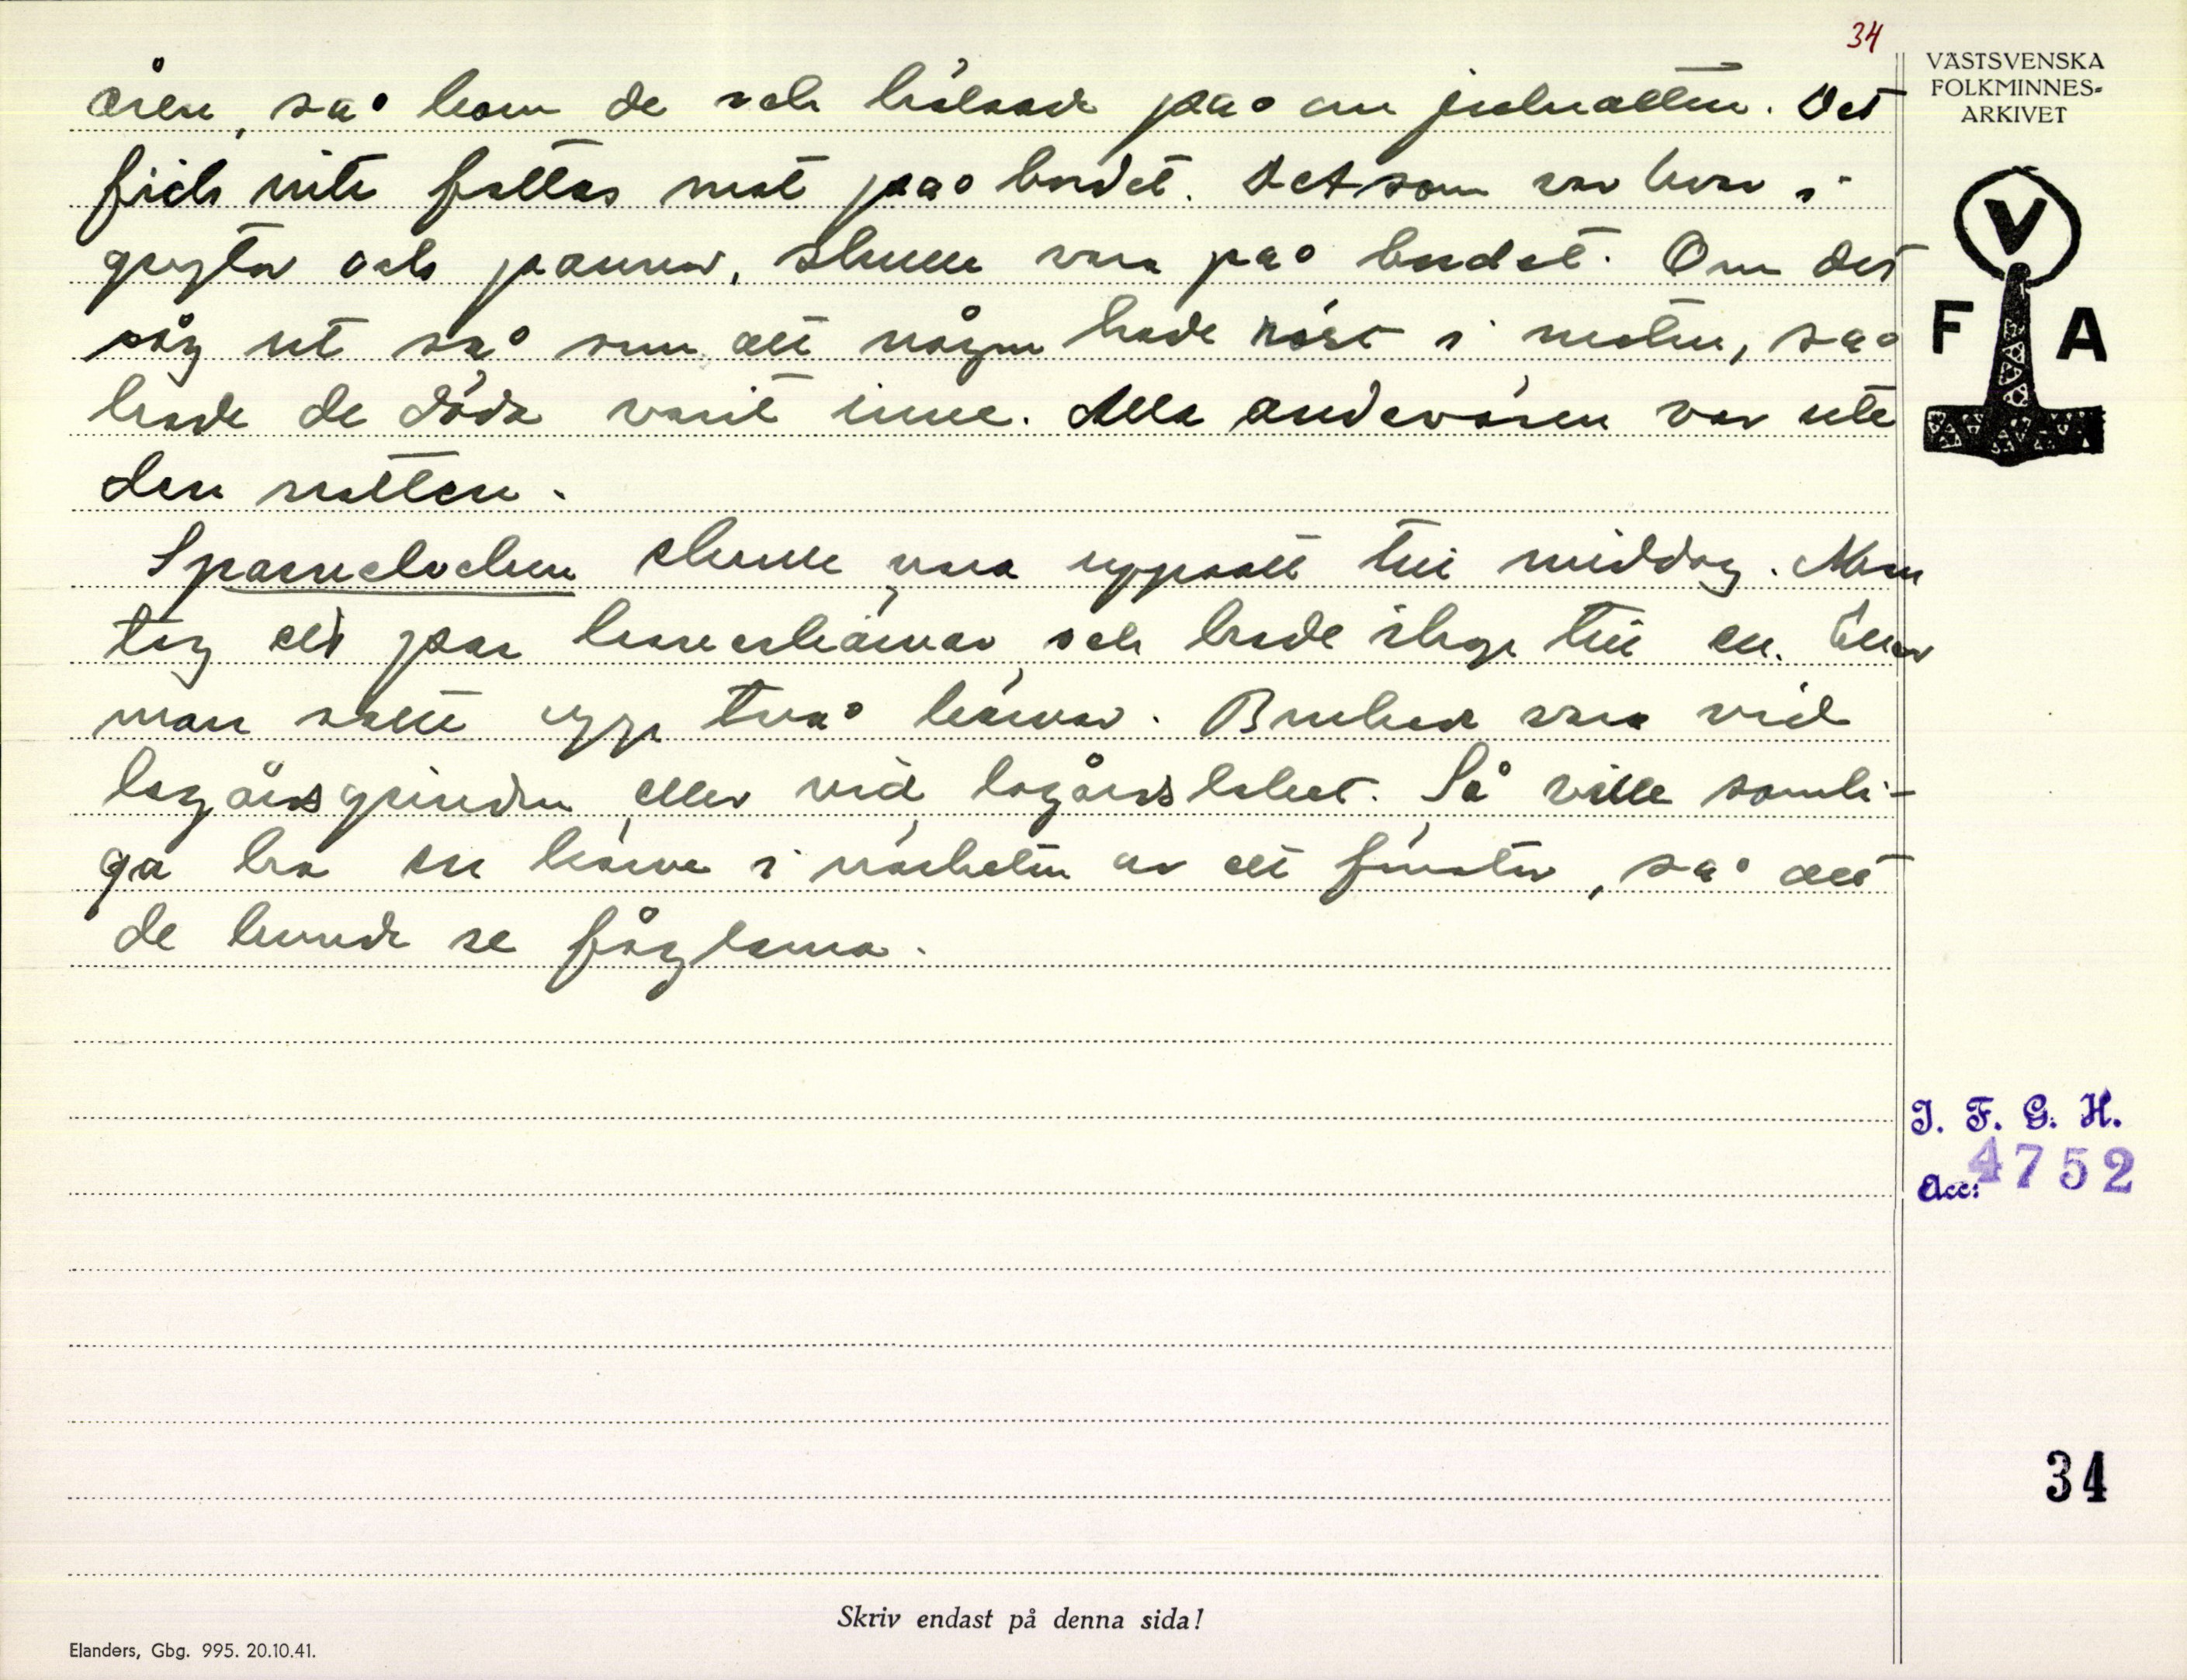 34
åren, så kom de och hälsade på om julnatten. Det
fick inte fattas mat på bordet. Det som var kvar i
grytor och pannor, skulle vara på bordet. Om det
såg ut så som att någon hade rört i maten, så
hade de döda varit inne. Alla andeväsen var ute
den natten.
Sparvelocken skulle vara uppsatt till middag. Man
tog ett par havrekärvar och hade ihop till en. Eller
man satte upp två kärvar. Brukade vara vid
logårdsgrinden eller vid logårdstaket. Så ville somli-
ga ha en kärve i närheten av ett fönster, så att
de kunde se fåglarna.
VÄSTSVENSKA
FOLKMINNES-
ARKIVET
V
F A
I. F. G. H.
Acc: 4752
34
Skriv endast på denna sida!
Elanders, Gbg. 995. 20.10.41.